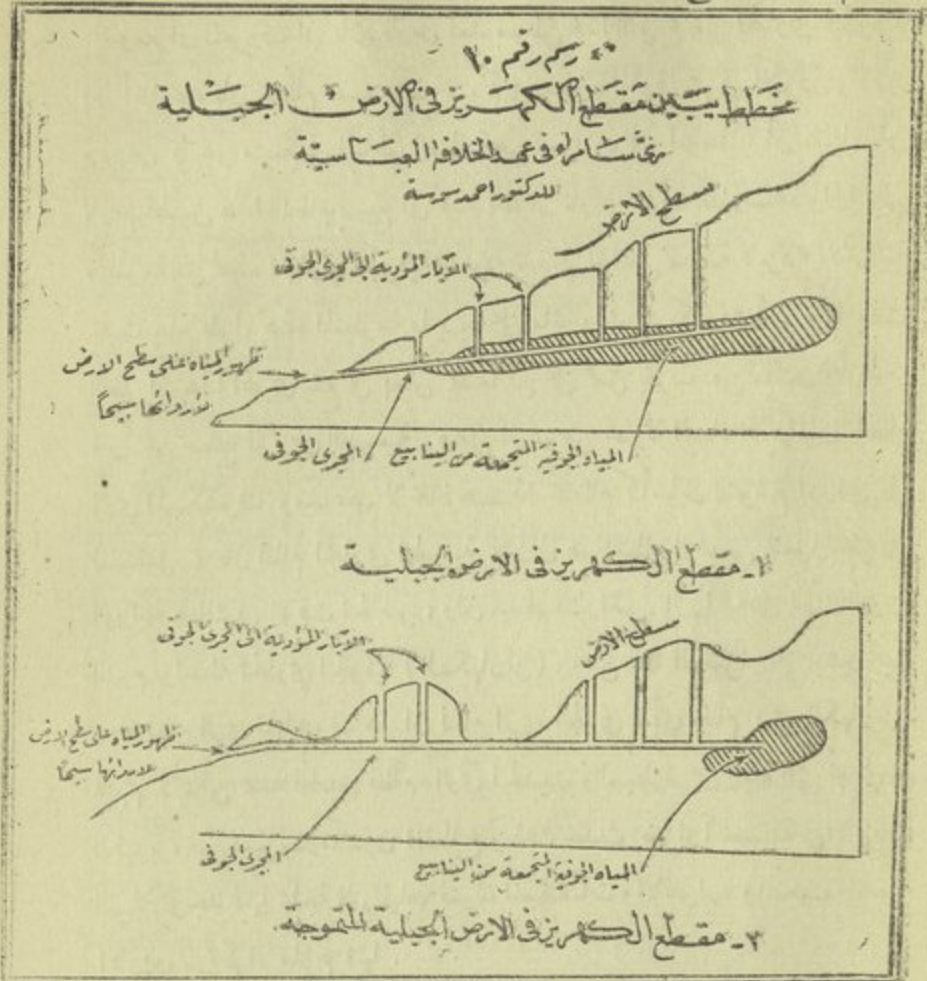 رسم رقم ١٠
مخطط يبين مقطع الكهريز في الارض الجبلية
ري سامراء في عهد الخلافة العباسية
للدكتور احمد سوسة
سطح الارض
الآبار المؤدية الى المجرى الجوفي
ظهور المياه على سطح الارض
لاروائها سيحاً
المجرى الجوفي
المياه الجوفية المتجمعة من الينابيع
١- مقطع الكهريز في الارض الجبلية
الآبار المؤدية الى المجرى الجوفي
سطح الارض
ظهور المياه على سطح الارض
لاروائها سيحاً
المجرى الجوفي
المياه الجوفية المتجمعة من الينابيع
٢- مقطع الكهريز في الارض الجبلية المتموجة